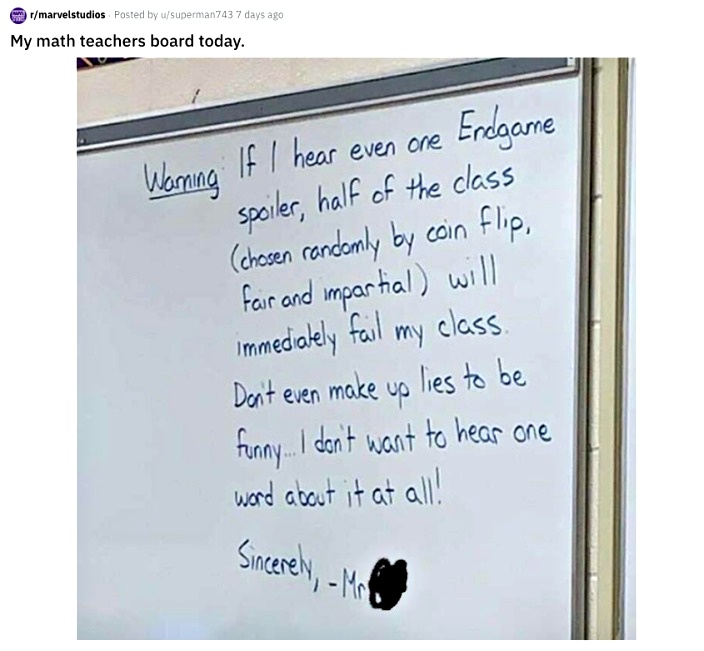 r/marvelstudios · Posted by u/superman743 7 days ago
My math teachers board today.
Warning: If I hear even one Endgame
spoiler, half of the class
(chosen randomly by coin flip,
fair and impartial) will
immediately fail my class.
Don't even make up lies to be
funny... I don't want to hear one
word about it at all!
Sincerely, -Mr